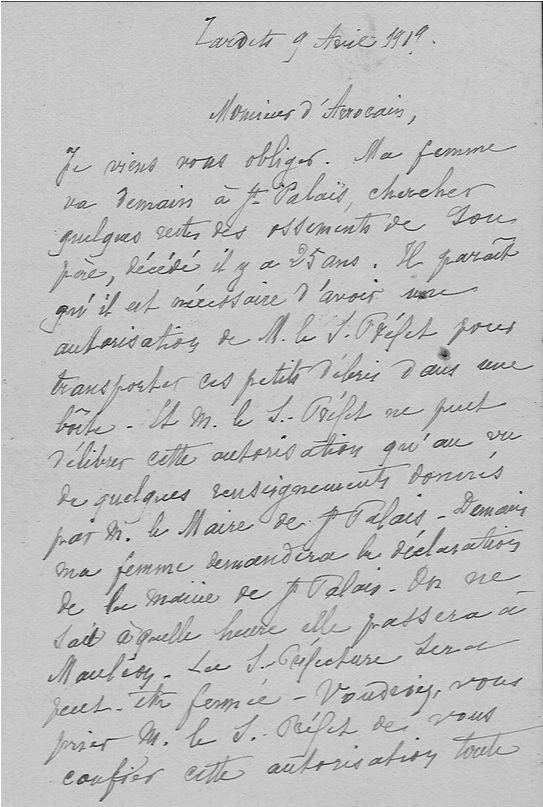 Tardets 9 Avril 1919.
Monsieur d'Arrocain,
Je viens vous obliger. Ma femme
va demain à St Palais, chercher
quelques restes des ossements de Son
père, décédé il y a 25 ans. Il paraît
qu'il est nécessaire d'avoir une
autorisation de M. le S. Préfet pour
transporter ces petits débris dans une
boîte - Et M. le S.- Préfet ne peut
délibrer cette autorisation qu'au vu
de quelques renseignements donnés
par M. le Maire de St Palais - Demain
ma femme demandera la déclaration
de la mairie de St Palais - On ne
sait à quelle heure elle passera à
Mauléon. La S.- Préfecture sera
peut-être fermée - Voudriez-vous
prier M. le S.- Préfet de vous
confier cette autorisation toute